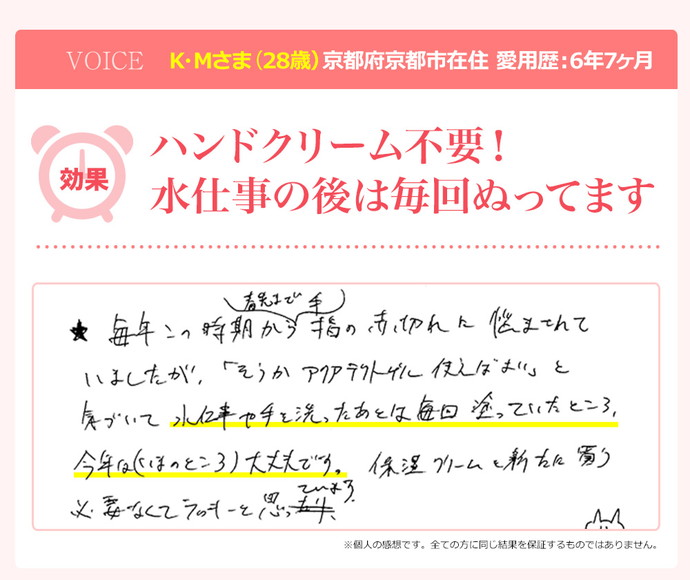 VOICE K・Mさま（28歳）京都府京都市在住 愛用歴：6年7ヶ月
効果
ハンドクリーム不要！
水仕事の後は毎回ぬってます
春先まで 手
★ 毎年この時期から指の赤切れに悩まされて
いましたが、「そうか アクアテクトゲル 使えばよい」と
気づいて 水仕事や手を洗ったあとは毎回 塗っていたところ、
今年は(いまのところ)大丈夫です。 保湿クリームを新たに買う
ています。
必要なくてラッキーと思っ
※個人の感想です。全ての方に同じ結果を保証するものではありません。